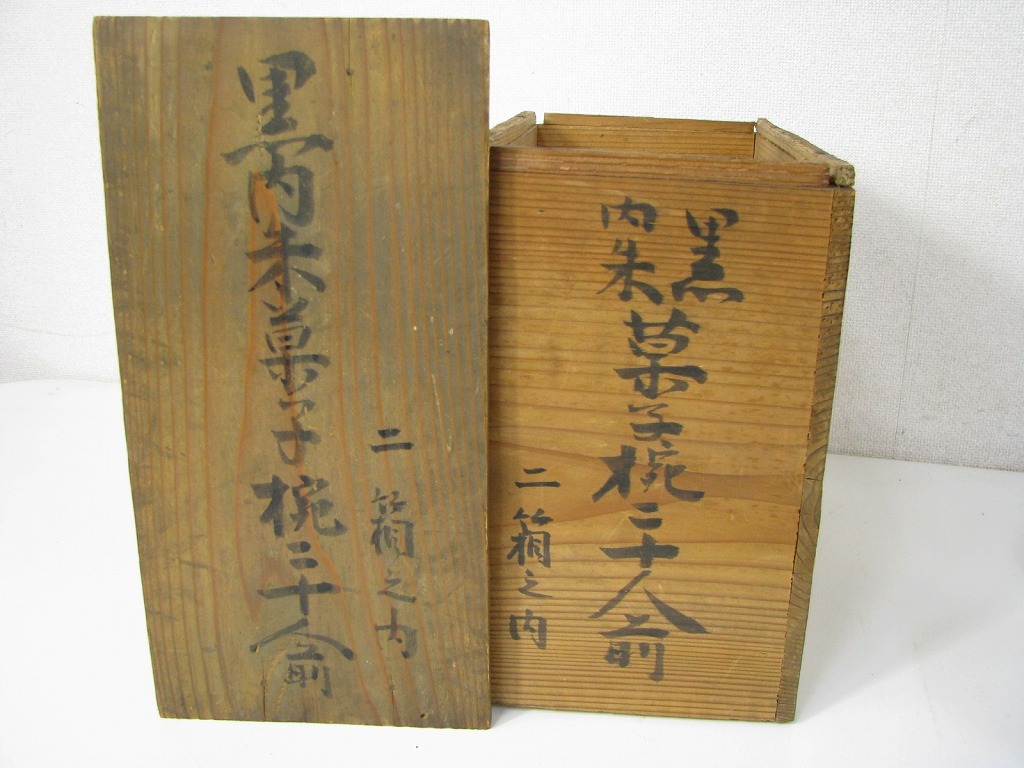 黒内朱菓子椀二十人前
二箱之内
黒
内朱
菓子椀二十人前
二箱之内